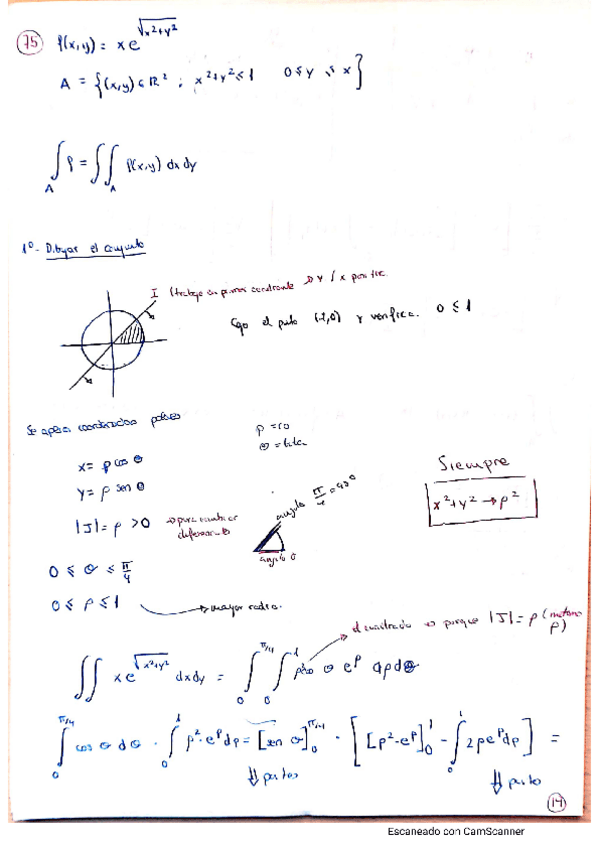 75 f(x,y) = x e^√(x²+y²)
A = {(x,y) ∈ ℝ² ; x²+y² ≤ 1 0 ≤ y ≤ x}
∫_A f = ∫∫_A f(x,y) dx dy
1º- Dibujar el conjunto
I (trabajo en primer cuadrante → y / x positiv.
Cojo el punto (1,0) y verifica. 0 ≤ 1
Se aplica coordenadas polares
ρ = ro
θ = tita
x = ρ cos θ
y = ρ sen θ
|J| = ρ > 0 → para cambiar
diferenciales
angulo π/4 = 45º
angulo 0
Siempre
x²+y² → ρ²
0 ≤ θ ≤ π/4
0 ≤ ρ ≤ 1 → mayor radio.
el cuadrado es porque |J| = ρ (metemos
ρ)
∫∫ x e^√(x²+y²) dx dy = ∫_0^π/4 ∫_0^1 ρ² cos θ e^ρ dρ dθ
∫_0^π/4 cos θ dθ · ∫_0^1 ρ²·e^ρ dρ = [sen θ]_0^π/4 · [[ρ²·e^ρ]_0^1 - ∫_0^1 2ρ e^ρ dρ] =
⇓ partes ⇓ parto
14
Escaneado con CamScanner